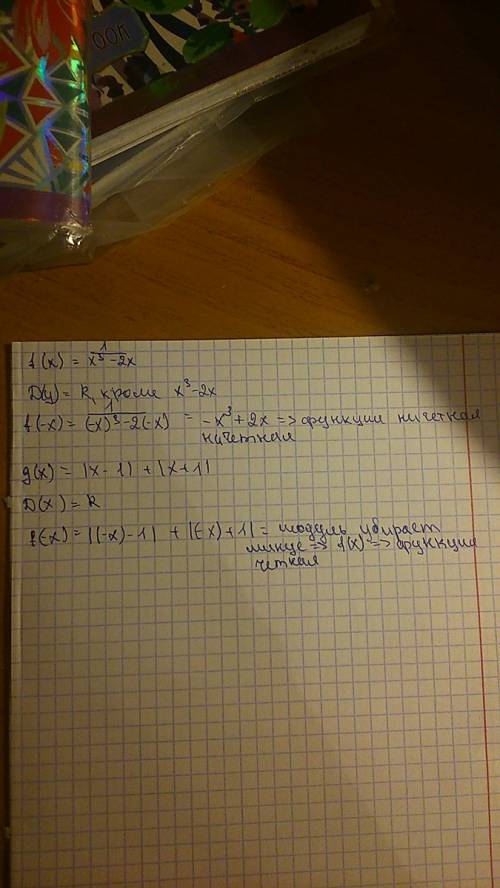 ООЛ
f(x) = 1/(x³-2x)
D(y) = R, кроме x³-2x
f(-x) = 1/((-x)³-2(-x)) = -x³+2x => функции ничетная
ничетная
g(x) = |x-1| + |x+1|
D(x) = R
f(-x) = |(-x)-1| + |(-x)+1| = модуль убирает
минус => f(x) => функция
четная